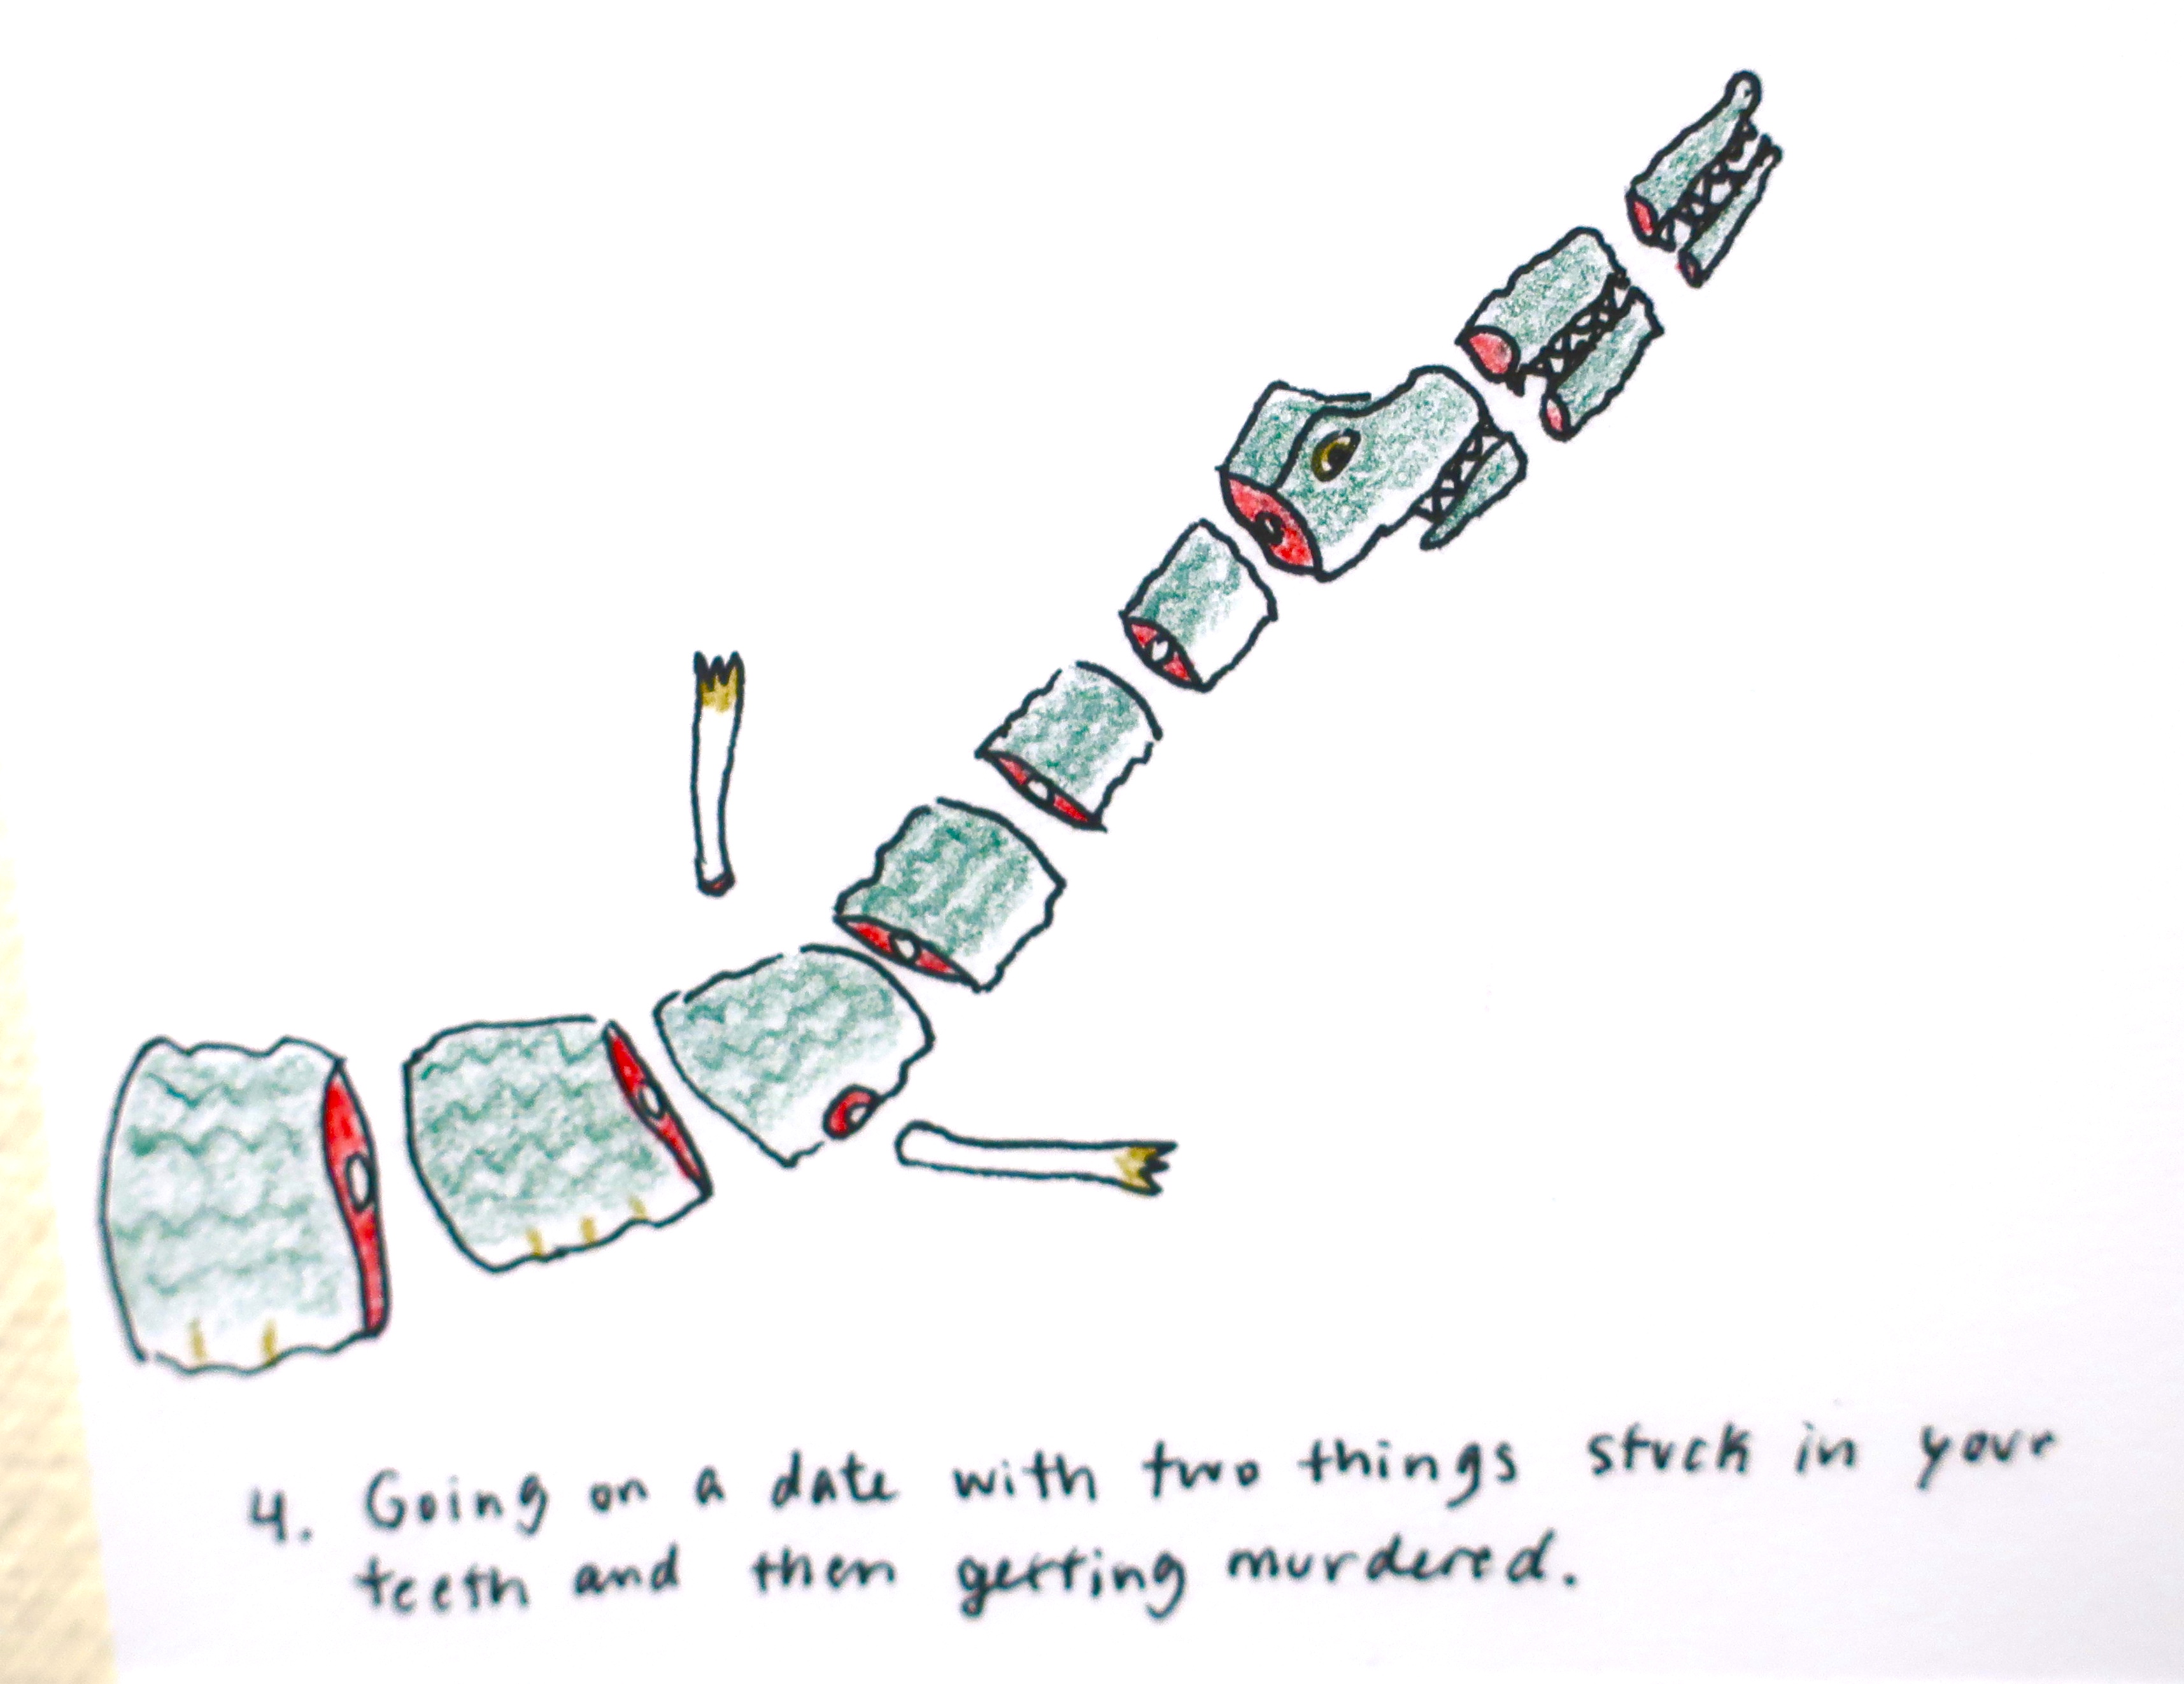 4. Going on a date with two things stuck in your
teeth and then getting murdered.